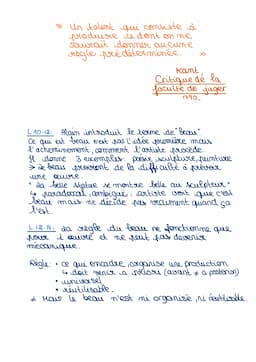 « Un talent qui consiste à
produire le dont on ne
saurait donner aucune
règle prédéterminée. »
Kant
Critique de la
faculté de juger
1790.
L.10-12: Alain introduit le terme de "beau"
Ce qui est beau n'est pas l'idée première mais
l'acheminement, comment l'artiste procède.
Il donne 3 exemples: poésie, sculpture, peinture
→ le beau provient de la difficulté à prévoir
une œuvre.
• "La belle statue se montre belle au sculpteur"
↳ paradoxal, ambigüe: artiste voit que c'est
beau mais ne décide pas vraiment quand ça
l'est.
: La règle du beau ne fonctionne que
pour 1 œuvre et ne peut pas devenir
mécanique.
Règle: • ce qui encadre, organise une production
↳ doit venir a priori (avant ≠ a posteriori)
• universel
• réutilisable.
Mais le beau n'est ni organisé, ni réutilisable.